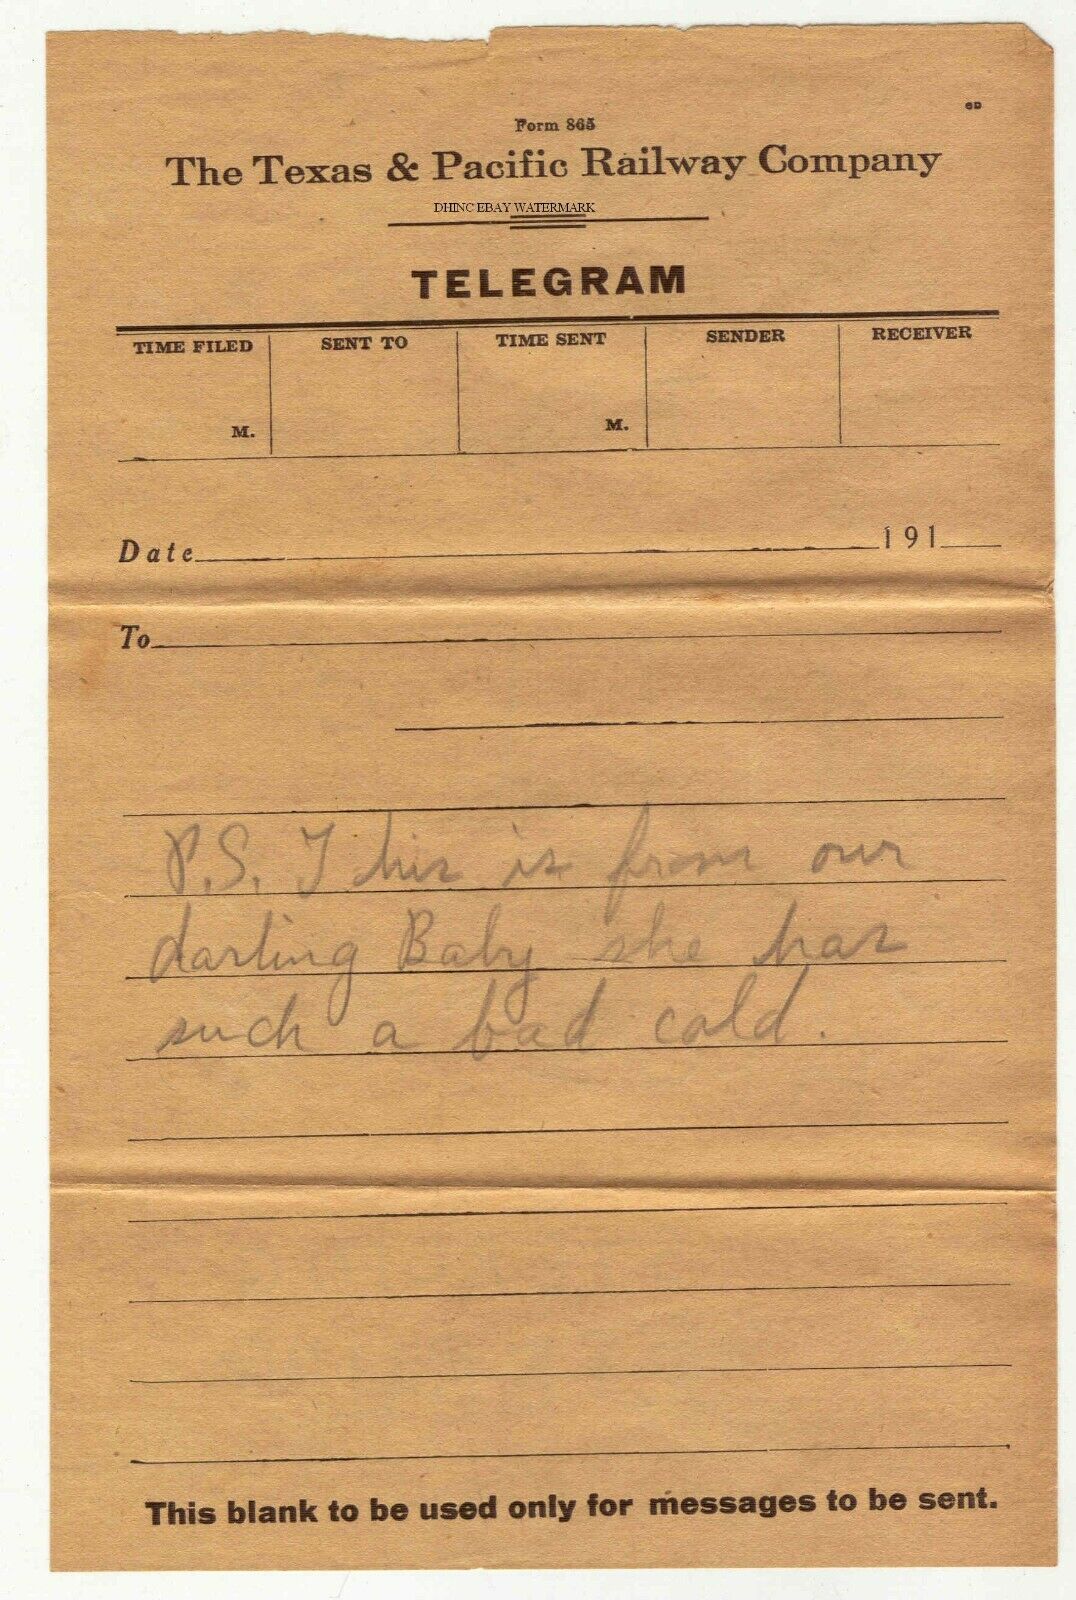 6D
Form 865
The Texas & Pacific Railway Company
DHINC EBAY WATERMARK
TELEGRAM
TIME FILED SENT TO TIME SENT SENDER RECEIVER
M. M.
Date 191
To
P.S. This is from our
darling Baby she has
such a bad cold.
This blank to be used only for messages to be sent.